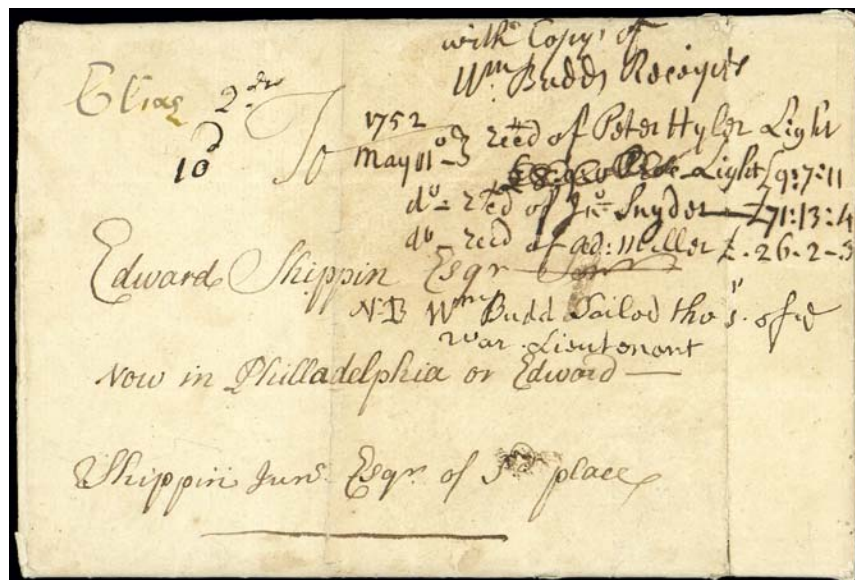 with Copys of
Wm Budds Receipts
Elias 2
10
To
1752
May 11o - Recd of Peter Hyler Light
Light £9:7:11
do - Recd of Jno Snyder - £71:13:4
do - Recd of ad: Miller £.26-2-3
Edward Shippin Esqr
N-B Wm Budd Sailed the of
war Lieutenant
Now in Philladelphia or Edward —
Shippin Junr Esqr of Sd place